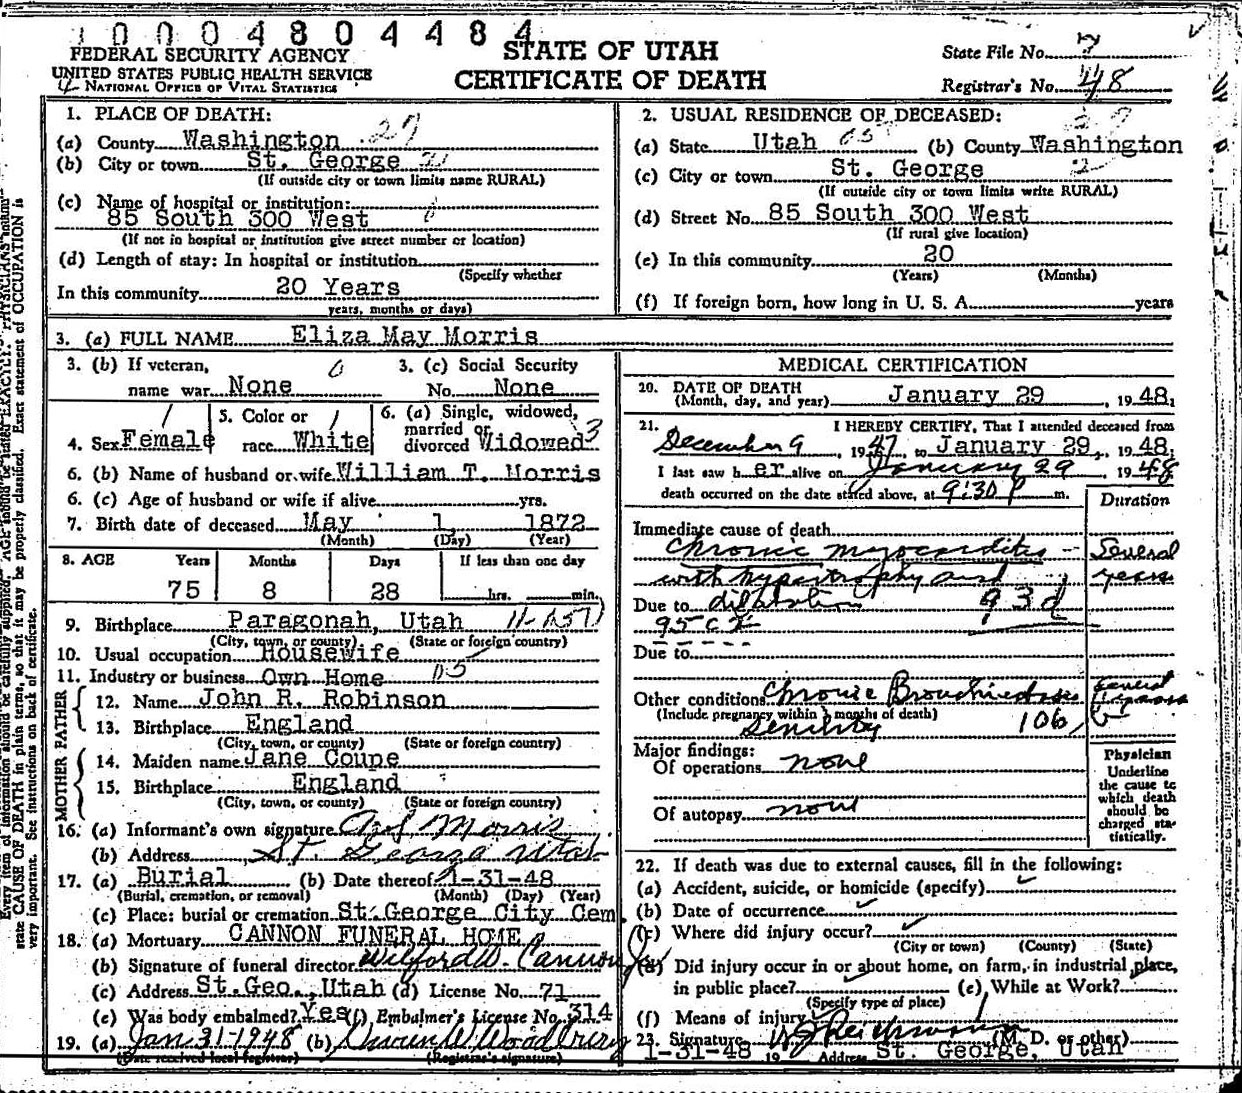 10004804484
FEDERAL SECURITY AGENCY
UNITED STATES PUBLIC HEALTH SERVICE
NATIONAL OFFICE OF VITAL STATISTICS
STATE OF UTAH
CERTIFICATE OF DEATH
State File No. 7
Registrar's No. 48
1. PLACE OF DEATH:
(a) County Washington 27
(b) City or town St. George 21
(If outside city or town limits name RURAL)
(c) Name of hospital or institution:
85 South 300 West
(If not in hospital or institution give street number or location)
(d) Length of stay: In hospital or institution
(Specify whether
In this community 20 Years
years, months or days)
2. USUAL RESIDENCE OF DECEASED:
(a) State Utah (b) County Washington
(c) City or town St. George
(If outside city or town limits write RURAL)
(d) Street No. 85 South 300 West
(If rural give location)
(e) In this community 20
(Years) (Months)
(f) If foreign born, how long in U. S. A. years
3. (a) FULL NAME Eliza May Morris
3. (b) If veteran, 0 3. (c) Social Security
name war None No. None
4. Sex Female 5. Color or race White 6. (a) Single, widowed, married or divorced Widowed 3
6. (b) Name of husband or wife William T. Morris
6. (c) Age of husband or wife if alive yrs.
7. Birth date of deceased May 1 1872
(Month) (Day) (Year)
8. AGE Years Months Days If less than one day
75 8 28 hrs. min.
9. Birthplace Paragonah, Utah
(City, town, or county) (State or foreign country)
10. Usual occupation Housewife
11. Industry or business Own Home
FATHER
12. Name John R. Robinson
13. Birthplace England
(City, town, or county) (State or foreign country)
MOTHER
14. Maiden name Jane Coupe
15. Birthplace England
(City, town, or county) (State or foreign country)
16. (a) Informant's own signature Morris
(b) Address St. George Utah
17. (a) Burial (b) Date thereof 1-31-48
(Burial, cremation, or removal) (Month) (Day) (Year)
(c) Place: burial or cremation St. George City Cem.
18. (a) Mortuary CANNON FUNERAL HOME
(b) Signature of funeral director Wilford W. Cannon
(c) Address St.Geo., Utah (d) License No. 71
(e) Was body embalmed? Yes (f) Embalmer's License No. 314
19. (a) Jan 31-1948 (b) Woodbury
(Date received local registrar) (Registrar's signature)
MEDICAL CERTIFICATION
20. DATE OF DEATH
(Month, day, and year) January 29, 1948.
21. I HEREBY CERTIFY, That I attended deceased from
December 9, 1947, to January 29, 1948.
I last saw her alive on January 29 1948
death occurred on the date stated above, at 9:30 P m.
Duration
Immediate cause of death
Chronic myocarditis - Several
with hypertrophy and years
Due to dilatation 93d
95c2
Due to
Other conditions Chronic Bronchiectasis
(Include pregnancy within 3 months of death)
Senility 106
Major findings:
Of operations none
Of autopsy none
Physician
Underline
the cause to
which death
should be
charged sta-
tistically.
22. If death was due to external causes, fill in the following:
(a) Accident, suicide, or homicide (specify)
(b) Date of occurrence
(c) Where did injury occur?
(City or town) (County) (State)
(d) Did injury occur in or about home, on farm, in industrial place,
in public place? (e) While at Work?
(Specify type of place)
(f) Means of injury
23. Signature (M. D. or other)
1-31-48 19 Address St. George, Utah
state CAUSE OF DEATH in plain terms, so that it may be properly classified. Exact statement of OCCUPATION is
very important. See instructions on back of certificate.